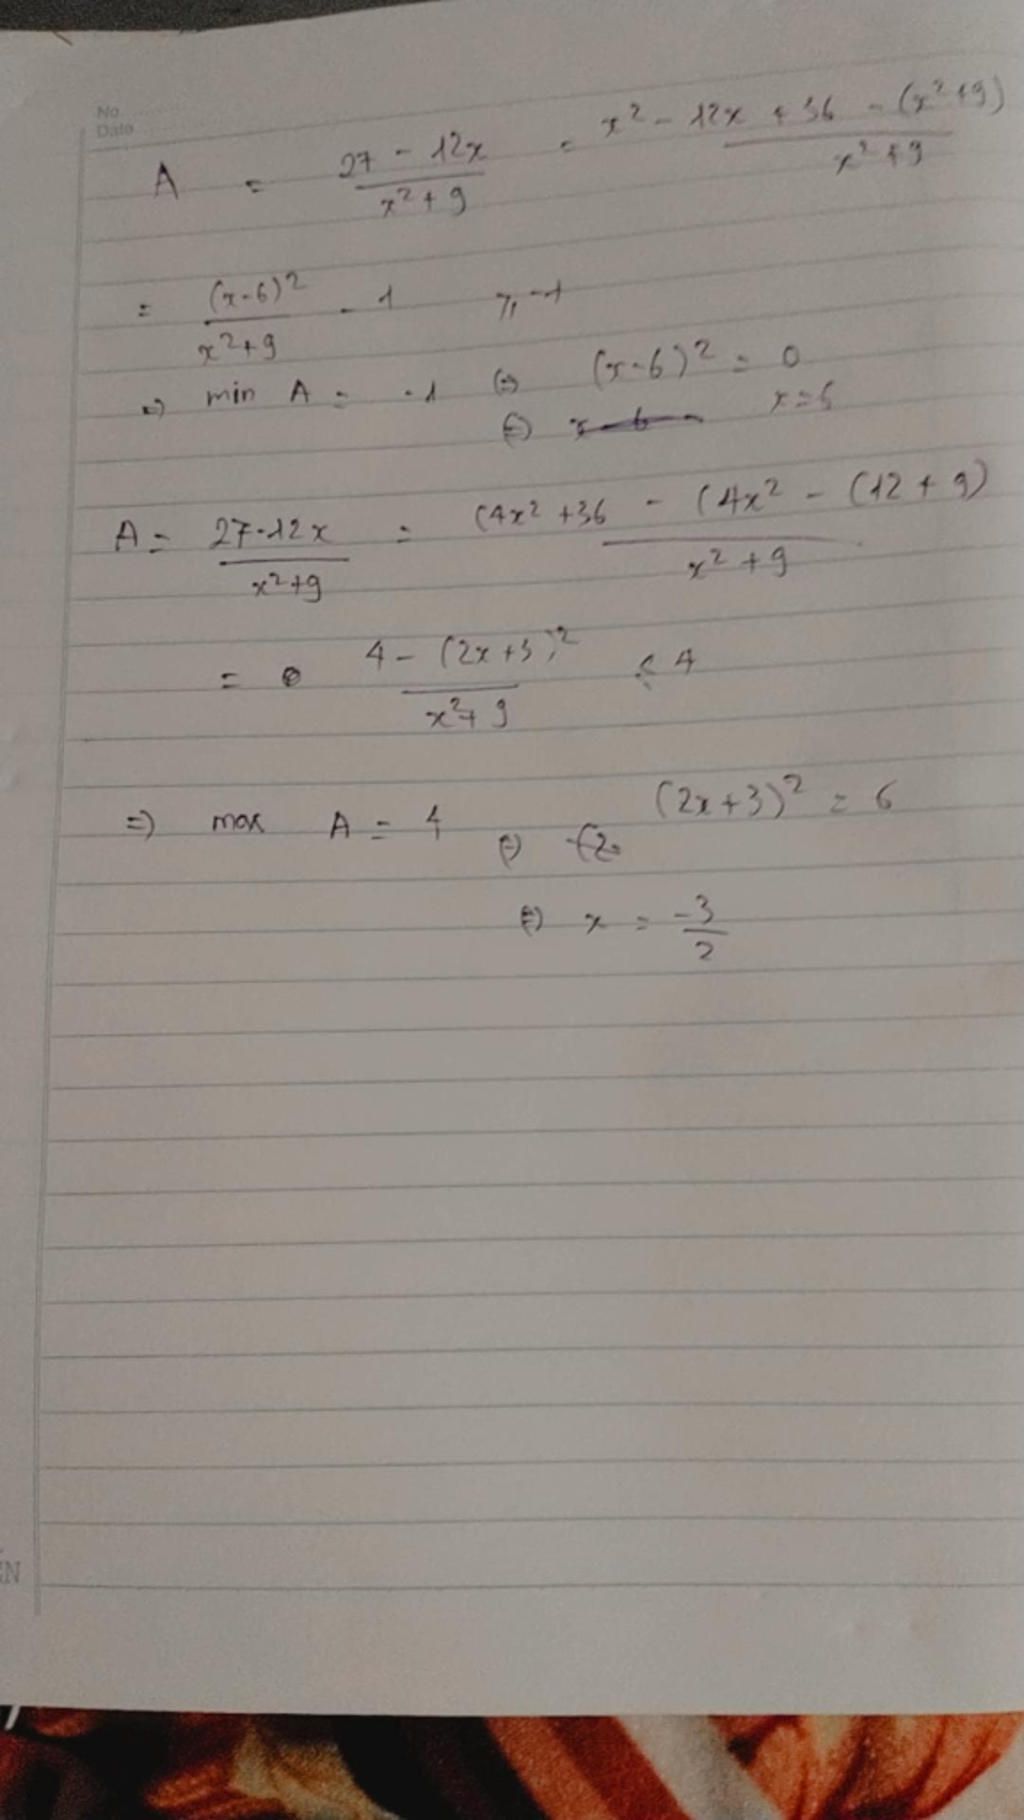 No
Date
A = \frac{27 - 12x}{x^2 + 9} = \frac{x^2 - 12x + 36 - (x^2 + 9)}{x^2 + 9}
= \frac{(x - 6)^2}{x^2 + 9} - 1 ≥ -1
=> min A = -1 <=> (x - 6)^2 = 0
<=> x = 6
A = \frac{27 - 12x}{x^2 + 9} = \frac{(4x^2 + 36 - (4x^2 - (12 + 9)}{x^2 + 9}
= \frac{4 - (2x + 3)^2}{x^2 + 9} ≤ 4
=> max A = 4 <=> (2x + 3)^2 = 6
<=> x = \frac{-3}{2}